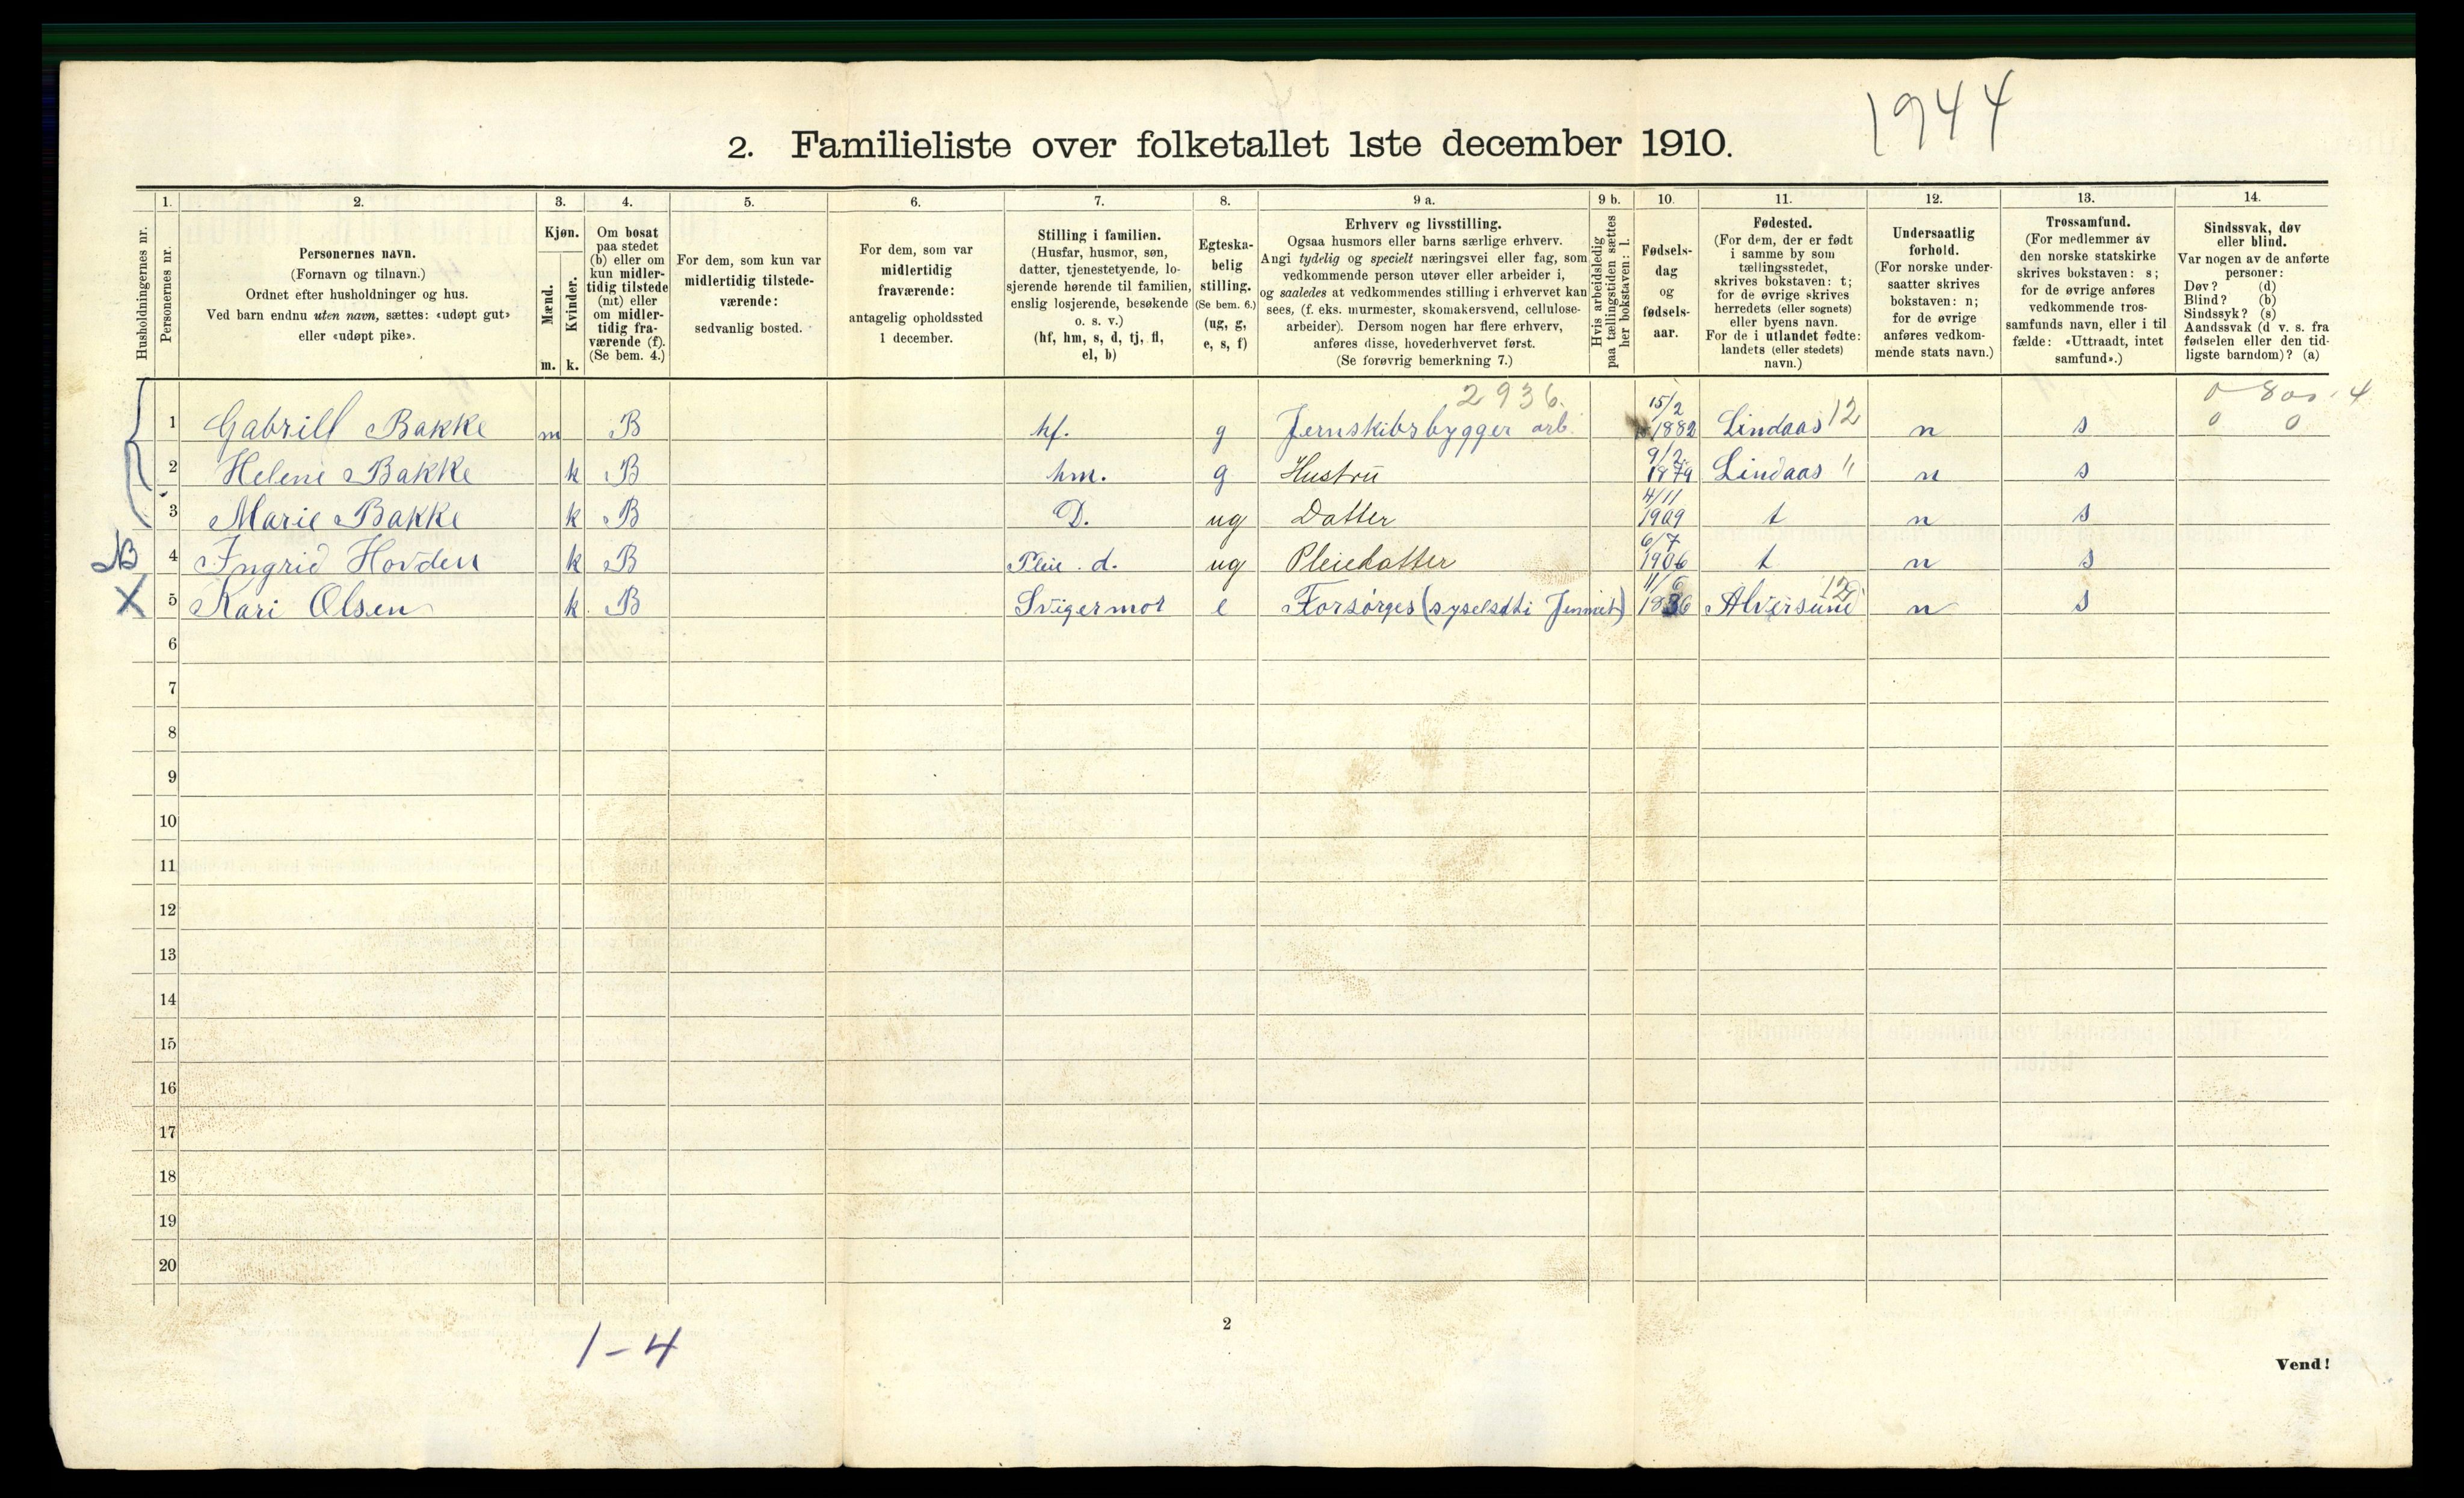 1944
2. Familieliste over folketallet 1ste december 1910.
Husholdningernes nr.
1. Personernes nr.
2. Personernes navn.
(Fornavn og tilnavn.)
Ordnet efter husholdninger og hus.
Ved barn endnu uten navn, sættes: «udøpt gut»
eller «udøpt pike».
3. Kjøn.
Mænd. m.
Kvinder. k.
4. Om bosat
paa stedet
(b) eller om
kun midler-
tidig tilstede
(mt) eller
om midler-
tidig fra-
værende (f).
(Se bem. 4.)
5. For dem, som kun var
midlertidig tilstede-
værende:
sedvanlig bosted.
6. For dem, som var
midlertidig
fraværende:
antagelig opholdssted
1 december.
7. Stilling i familien.
(Husfar, husmor, søn,
datter, tjenestetyende, lo-
sjerende hørende til familien,
enslig losjerende, besøkende
o. s. v.)
(hf, hm, s, d, tj, fl,
el, b)
8. Egteska-
belig
stilling.
(Se bem. 6.)
(ug, g,
e, s, f)
9 a. Erhverv og livsstilling.
Ogsaa husmors eller barns særlige erhverv.
Angi tydelig og specielt næringsvei eller fag, som
vedkommende person utøver eller arbeider i,
og saaledes at vedkommendes stilling i erhvervet kan
sees, (f. eks. murmester, skomakersvend, cellulose-
arbeider). Dersom nogen har flere erhverv,
anføres disse, hovederhvervet først.
(Se forøvrig bemerkning 7.)
9 b. Hvis arbeidsledig
paa tællingstiden sættes
her bokstaven: l.
10. Fødsels-
dag
og
fødsels-
aar.
11. Fødested.
(For dem, der er født
i samme by som
tællingsstedet,
skrives bokstaven: t;
for de øvrige skrives
herredets (eller sognets)
eller byens navn.
For de i utlandet fødte:
landets (eller stedets)
navn.)
12. Undersaatlig
forhold.
(For norske under-
saatter skrives
bokstaven: n;
for de øvrige
anføres vedkom-
mende stats navn.)
13. Trossamfund.
(For medlemmer av
den norske statskirke
skrives bokstaven: s;
for de øvrige anføres
vedkommende tros-
samfunds navn, eller i til
fælde: «Uttraadt, intet
samfund».)
14. Sindssvak, døv
eller blind.
Var nogen av de anførte
personer:
Døv? (d)
Blind? (b)
Sindssyk? (s)
Aandssvak (d v. s. fra
fødselen eller den tid-
ligste barndom)? (a)
2936.
1 Gabrill Bakke m B hf. g Jernskibsbygger arb. 15/2 1882 Lindaas 12 n s 0 0
2 Helene Bakke k B hm. g Hustru 9/2 1879 Lindaas " n s
3 Marie Bakke k B D. ug Datter 4/11 1909 t n s
4 Ingrid Hovden k B Pleie. d. ug Pleiedatter 6/7 1906 t n s
X 5 Kari Olsen k. B Svigermor e Forsørges (syselsat i 11/6 1836 Alversund 12 n s
6
7
8
9
10
11
12
13
14
15
16
17
18
19
20
1-4
2
Vend!